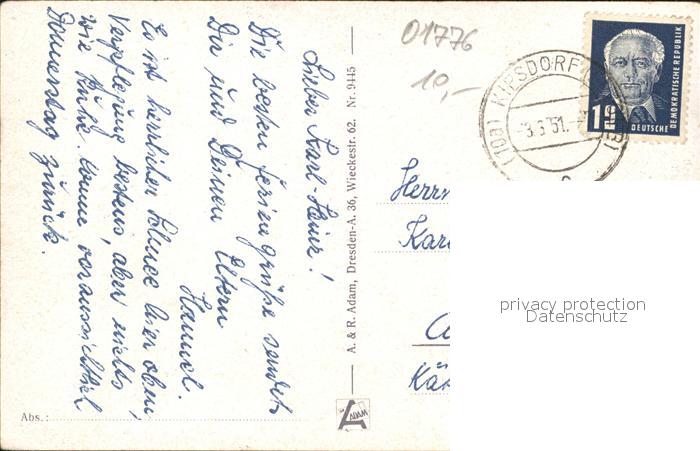 Lieber Karl-Heinz!
Die besten Feriengrüße sendet
Dir und Deinen Eltern
Hannel.
Es ist herrlicher Schnee hier oben,
Verpflegung bestens, aber nichts
wie Füße. komme voraussichtlich
Donnerstag zurück.
Abs.:
A. & R. Adam, Dresden-A. 36, Wieckestr. 62. Nr. 9445
ADAM
01776
10,-
(10a) KIPSDORF
-3.3.51.
DEUTSCHE
DEMOKRATISCHE REPUBLIK
Herrn
Kar
Kä
privacy protection
Datenschutz